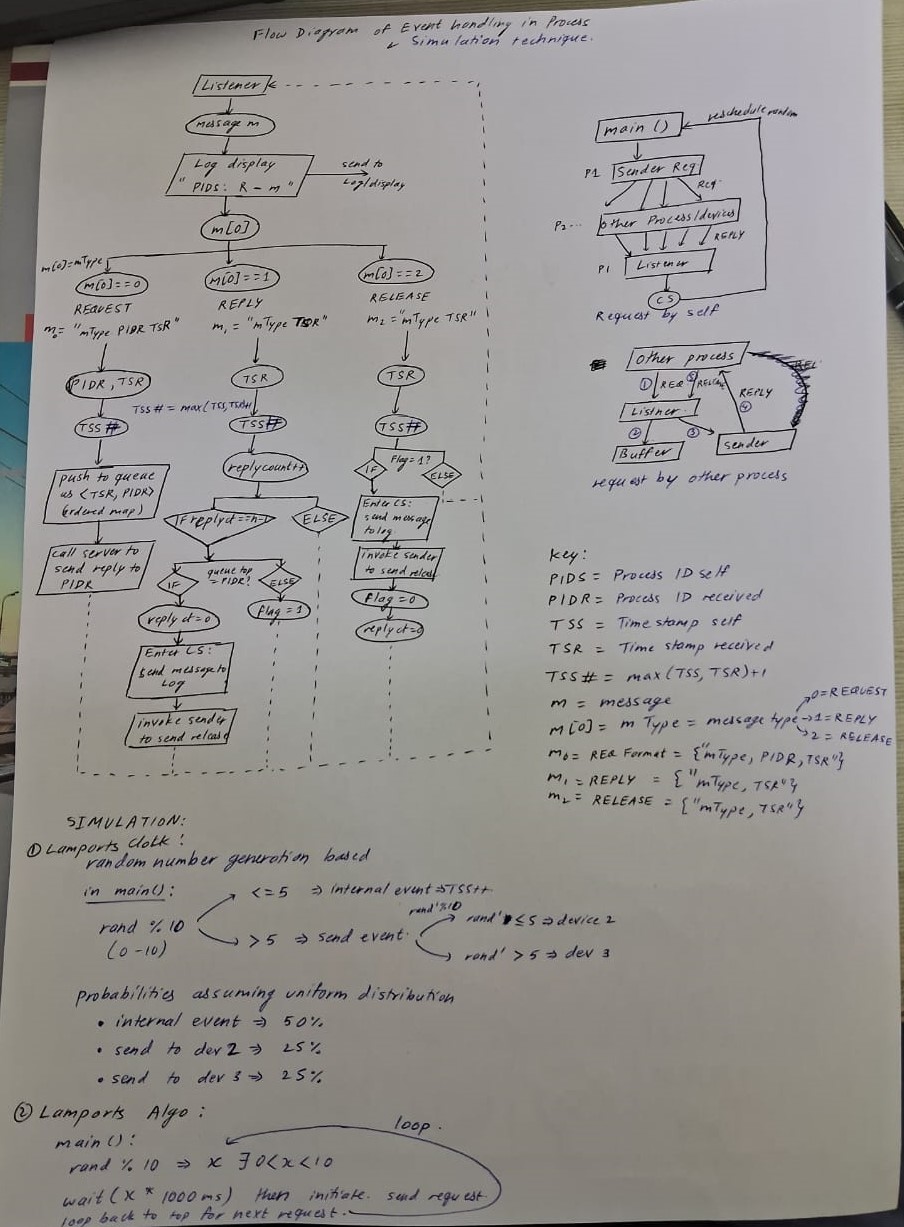 Flow Diagram of Event handling in Process
& Simulation technique.
Listener
message m
Log display
" PIDS: R - m "
send to
Log/display
m[0]
m[0]=mType
m[0]==0
REQUEST
m₀= "mType PIDR TSR"
m[0]==1
REPLY
m₁ = "mType TSR"
m[0]==2
RELEASE
m₂="mType TSR"
PIDR, TSR
TSR
TSR
TSS# = max(TSS,
TSS#
TSS#
TSS#
push to queue
as <TSR, PIDR>
(ordered map)
call server to
send reply to
PIDR
replycount++
If replyct==n-1
ELSE
IF
queue top
= PIDR?
ELSE
reply ct=0
flag = 1
Enter CS:
send message to
Log
invoke sender
to send release
IF
Flag=1?
ELSE
Enter CS:
send message
to log
invoke sender
to send release
flag=0
reply ct=0
main ()
reschedule random
P1
Sender Req
REQ
P2...
other Process/devices
REPLY
P1
Listener
CS
Request by self
Other process
① REQ
⑤ RELEASE
REPLY
④
Listner
②
③
Buffer
sender
request by other process
Key:
PIDS = Process ID self
PIDR = Process ID received
TSS = Time stamp self
TSR = Time stamp received
TSS# = max(TSS, TSR)+1
m = message
m[0] = m Type = message type
0=REQUEST
1=REPLY
2 = RELEASE
m₀ = REQ Format = {"mType, PIDR, TSR"}
m₁ = REPLY = {"mType, TSR"}
m₂ = RELEASE = {"mType, TSR"}
SIMULATION:
① Lamports Clolk:
random number generation based
in main():
rand % 10
(0-10)
<=5 ⇒ internal event ⇒TSS++
>5 ⇒ send event
rand'%10
rand' ≤5 ⇒ device 2
rand' >5 ⇒ dev 3
probabilities assuming uniform distribution
• internal event ⇒ 50%
• send to dev 2 ⇒ 25%
• send to dev 3 ⇒ 25%
② Lamports Algo:
main():
loop.
rand % 10 ⇒ x ∃ 0<x<10
wait(x * 1000ms) then initiate send request.
loop back to top for next request.